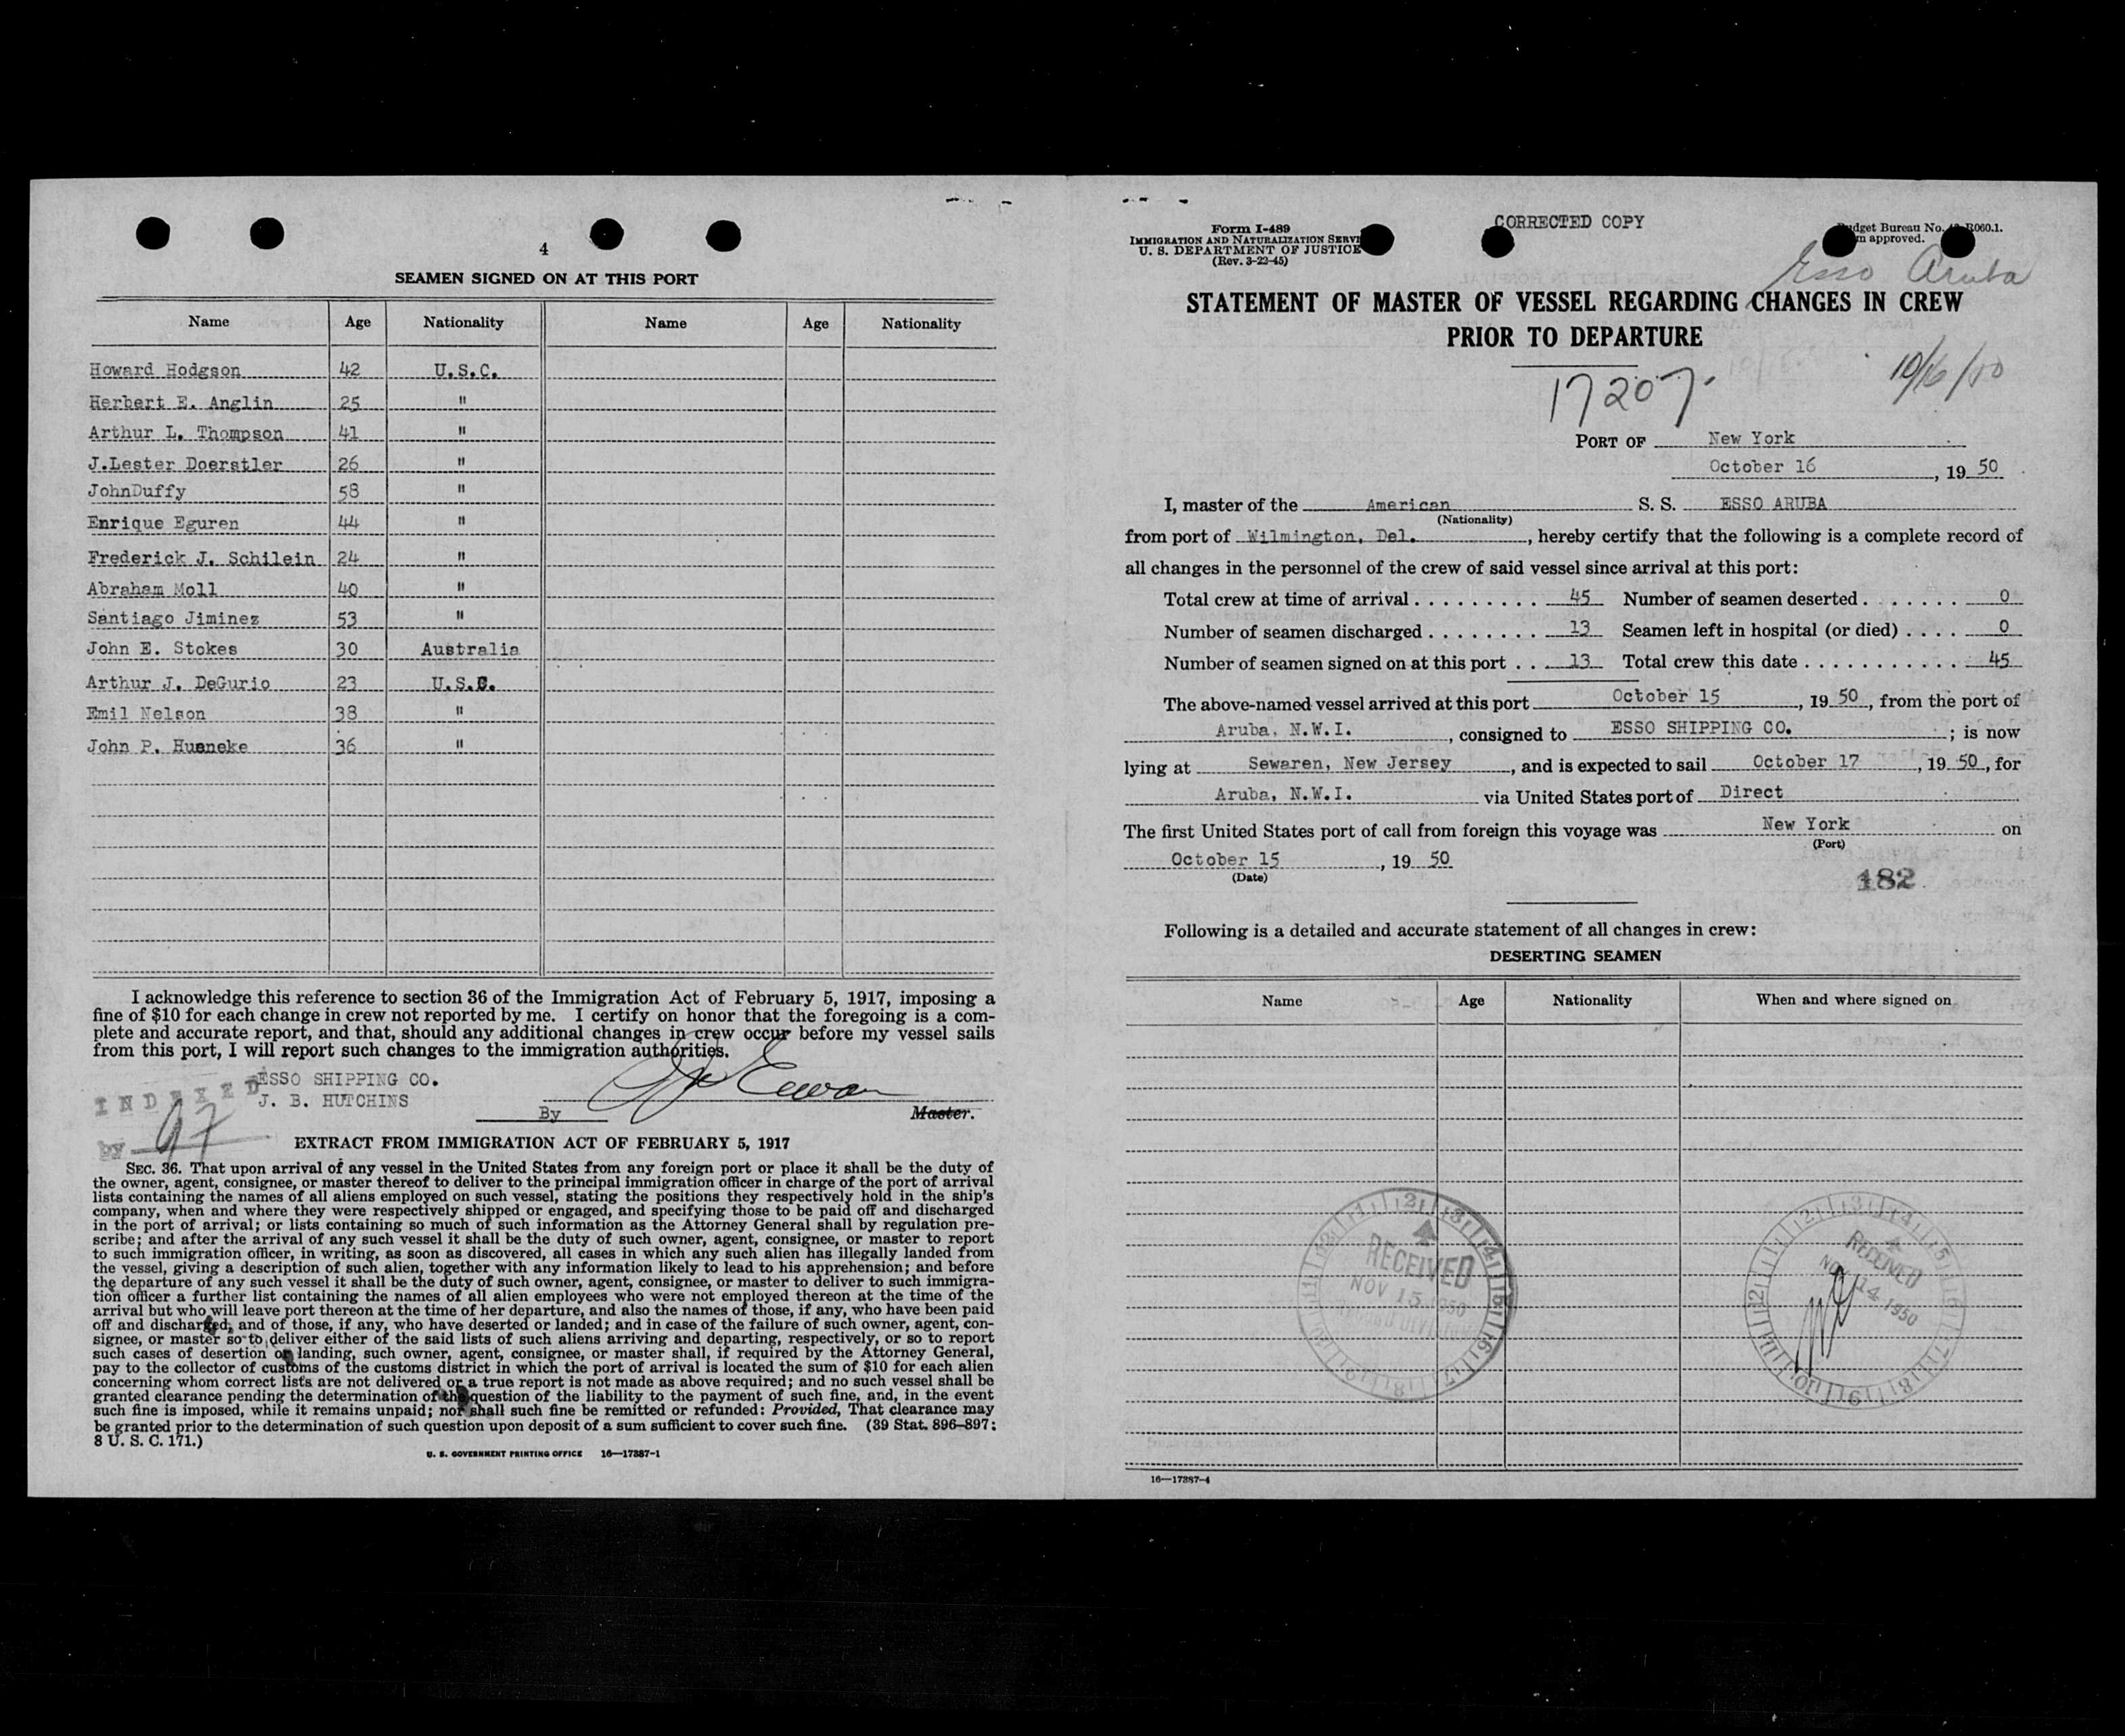 4
SEAMEN SIGNED ON AT THIS PORT
Name Age Nationality Name Age Nationality
Howard Hodgson 42 U.S.C.
Herbert E. Anglin 25 "
Arthur L. Thompson 41 "
J.Lester Doerstler 26 "
JohnDuffy 58 "
Enrique Eguren 44 "
Frederick J. Schilein 24 "
Abraham Moll 40 "
Santiago Jiminez 53 "
John E. Stokes 30 Australia
Arthur J. DeGurio 23 U.S.C.
Emil Nelson 38 "
John P. Hueneke 36 "
I acknowledge this reference to section 36 of the Immigration Act of February 5, 1917, imposing a
fine of $10 for each change in crew not reported by me. I certify on honor that the foregoing is a com-
plete and accurate report, and that, should any additional changes in crew occur before my vessel sails
from this port, I will report such changes to the immigration authorities.
ESSO SHIPPING CO.
INDEXED
J. B. HUTCHINS
By Master.
by
EXTRACT FROM IMMIGRATION ACT OF FEBRUARY 5, 1917
SEC. 36. That upon arrival of any vessel in the United States from any foreign port or place it shall be the duty of
the owner, agent, consignee, or master thereof to deliver to the principal immigration officer in charge of the port of arrival
lists containing the names of all aliens employed on such vessel, stating the positions they respectively hold in the ship's
company, when and where they were respectively shipped or engaged, and specifying those to be paid off and discharged
in the port of arrival; or lists containing so much of such information as the Attorney General shall by regulation pre-
scribe; and after the arrival of any such vessel it shall be the duty of such owner, agent, consignee, or master to report
to such immigration officer, in writing, as soon as discovered, all cases in which any such alien has illegally landed from
the vessel, giving a description of such alien, together with any information likely to lead to his apprehension; and before
the departure of any such vessel it shall be the duty of such owner, agent, consignee, or master to deliver to such immigra-
tion officer a further list containing the names of all alien employees who were not employed thereon at the time of the
arrival but who will leave port thereon at the time of her departure, and also the names of those, if any, who have been paid
off and discharged, and of those, if any, who have deserted or landed; and in case of the failure of such owner, agent, con-
signee, or master so to deliver either of the said lists of such aliens arriving and departing, respectively, or so to report
such cases of desertion or landing, such owner, agent, consignee, or master shall, if required by the Attorney General,
pay to the collector of customs of the customs district in which the port of arrival is located the sum of $10 for each alien
concerning whom correct lists are not delivered or a true report is not made as above required; and no such vessel shall be
granted clearance pending the determination of the question of the liability to the payment of such fine, and, in the event
such fine is imposed, while it remains unpaid; nor shall such fine be remitted or refunded: Provided, That clearance may
be granted prior to the determination of such question upon deposit of a sum sufficient to cover such fine. (39 Stat. 896–897;
8 U. S. C. 171.)
U. S. GOVERNMENT PRINTING OFFICE 16—17387-1
Form I-489
IMMIGRATION AND NATURALIZATION SERVI
U. S. DEPARTMENT OF JUSTICE
(Rev. 3-22-45)
CORRECTED COPY
dget Bureau No. R060.1.
m approved.
Esso Aruba
STATEMENT OF MASTER OF VESSEL REGARDING CHANGES IN CREW
PRIOR TO DEPARTURE
17207. 10/16/50
PORT OF New York
October 16, 19 50
I, master of the American S. S. ESSO ARUBA
(Nationality)
from port of Wilmington, Del., hereby certify that the following is a complete record of
all changes in the personnel of the crew of said vessel since arrival at this port:
Total crew at time of arrival 45 Number of seamen deserted 0
Number of seamen discharged 13 Seamen left in hospital (or died) 0
Number of seamen signed on at this port 13 Total crew this date 45
The above-named vessel arrived at this port October 15, 19 50, from the port of
Aruba, N.W.I., consigned to ESSO SHIPPING CO.; is now
lying at Sewaren, New Jersey, and is expected to sail October 17, 19 50, for
Aruba, N.W.I. via United States port of Direct
The first United States port of call from foreign this voyage was New York on
(Port)
October 15, 19 50
(Date)
182
Following is a detailed and accurate statement of all changes in crew:
DESERTING SEAMEN
Name Age Nationality When and where signed on
RECEIVED
NOV 15 1950
RECEIVED
NOV 14 1950
16—17387-4